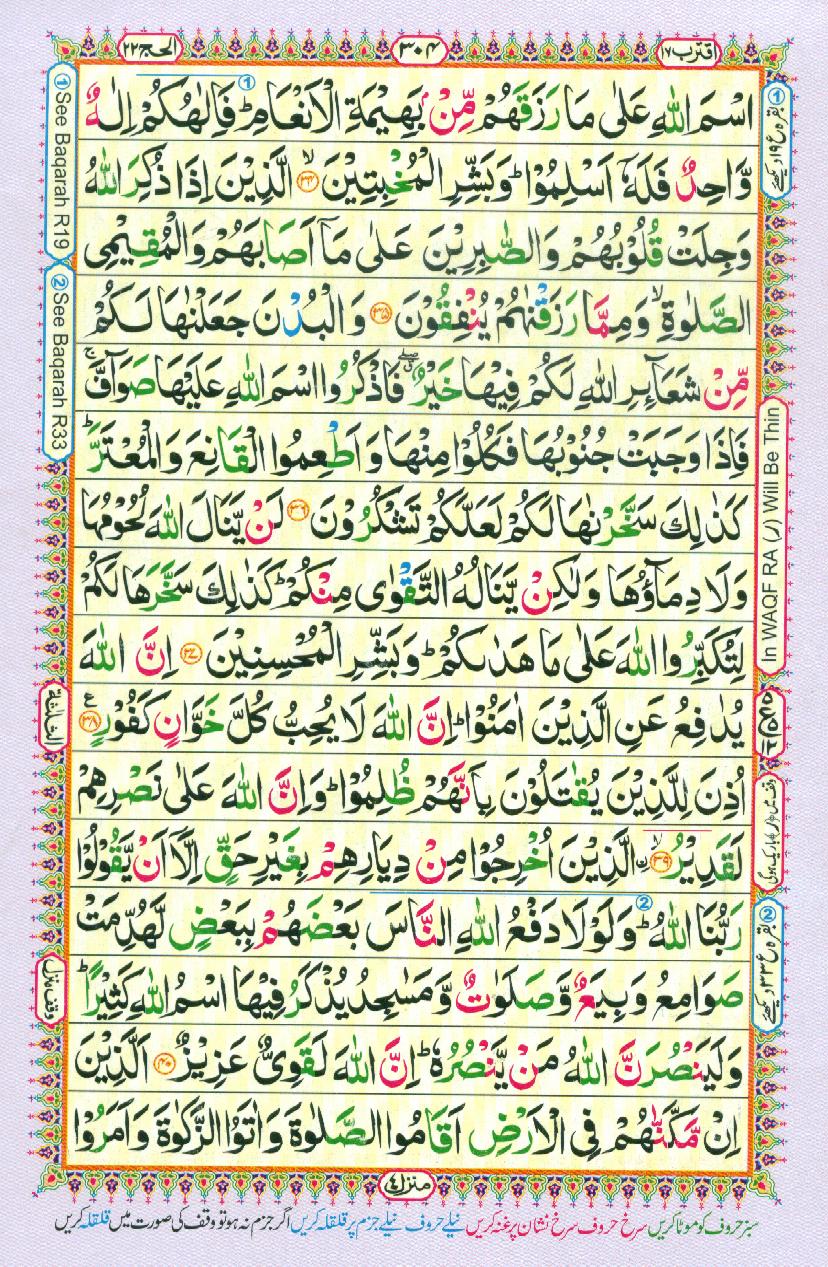 اقترب ١٧
٣٠٤
الحج ٢٢
اسْمَ اللّٰهِ عَلٰى مَا رَزَقَهُمْ مِّنْۢ بَهِيْمَةِ الْاَنْعَامِ ؕ فَاِلٰهُكُمْ اِلٰهٌ
وَّاحِدٌ فَلَهٗۤ اَسْلِمُوْا ؕ وَبَشِّرِ الْمُخْبِتِيْنَ ۙ ﴿٣٤﴾ الَّذِيْنَ اِذَا ذُكِرَ اللّٰهُ
وَجِلَتْ قُلُوْبُهُمْ وَالصّٰبِرِيْنَ عَلٰى مَاۤ اَصَابَهُمْ وَالْمُقِيْمِى
الصَّلٰوةِ ۙ وَمِمَّا رَزَقْنٰهُمْ يُنْفِقُوْنَ ﴿٣٥﴾ وَالْبُدْنَ جَعَلْنٰهَا لَكُمْ
مِّنْ شَعَآئِرِ اللّٰهِ لَكُمْ فِيْهَا خَيْرٌ ۖ فَاذْكُرُوا اسْمَ اللّٰهِ عَلَيْهَا صَوَآفَّ ۚ
فَاِذَا وَجَبَتْ جُنُوْبُهَا فَكُلُوْا مِنْهَا وَاَطْعِمُوا الْقَانِعَ وَالْمُعْتَرَّ ؕ
كَذٰلِكَ سَخَّرْنٰهَا لَكُمْ لَعَلَّكُمْ تَشْكُرُوْنَ ﴿٣٦﴾ لَنْ يَّنَالَ اللّٰهَ لُحُوْمُهَا
وَلَا دِمَآؤُهَا وَلٰكِنْ يَّنَالُهُ التَّقْوٰى مِنْكُمْ ؕ كَذٰلِكَ سَخَّرَهَا لَكُمْ
لِتُكَبِّرُوا اللّٰهَ عَلٰى مَا هَدٰىكُمْ ؕ وَبَشِّرِ الْمُحْسِنِيْنَ ﴿٣٧﴾ اِنَّ اللّٰهَ
يُدٰفِعُ عَنِ الَّذِيْنَ اٰمَنُوْا ؕ اِنَّ اللّٰهَ لَا يُحِبُّ كُلَّ خَوَّانٍ كَفُوْرٍ ﴿٣٨﴾ ع
اُذِنَ لِلَّذِيْنَ يُقٰتَلُوْنَ بِاَنَّهُمْ ظُلِمُوْا ؕ وَاِنَّ اللّٰهَ عَلٰى نَصْرِهِمْ
لَقَدِيْرُ ۙ ﴿٣٩﴾ ۨالَّذِيْنَ اُخْرِجُوْا مِنْ دِيَارِهِمْ بِغَيْرِ حَقٍّ اِلَّاۤ اَنْ يَّقُوْلُوْا
رَبُّنَا اللّٰهُ ؕ وَلَوْلَا دَفْعُ اللّٰهِ النَّاسَ بَعْضَهُمْ بِبَعْضٍ لَّهُدِّمَتْ
صَوَامِعُ وَبِيَعٌ وَّصَلَوٰتٌ وَّمَسٰجِدُ يُذْكَرُ فِيْهَا اسْمُ اللّٰهِ كَثِيْرًا ؕ
وَلَيَنْصُرَنَّ اللّٰهُ مَنْ يَّنْصُرُهٗ ؕ اِنَّ اللّٰهَ لَقَوِىٌّ عَزِيْزٌ ﴿٤٠﴾ اَلَّذِيْنَ
اِنْ مَّكَّنّٰهُمْ فِى الْاَرْضِ اَقَامُوا الصَّلٰوةَ وَاٰتَوُا الزَّكٰوةَ وَاَمَرُوْا
① See Baqarah R19
② See Baqarah R33
الثلاثة
وقف منزل
① بقرہ ع ١٩ دیکھئے
In WAQF RA (ر) Will Be Thin
② بقرہ ع ٣٣ دیکھئے
منزل ٤
سبز حروف کو موٹا کریں سرخ حروف سرخ نشان پر غنہ کریں نیلے حروف نیلے جزم پر قلقلہ کریں اگر جزم نہ ہو تو وقف کی صورت میں قلقلہ کریں